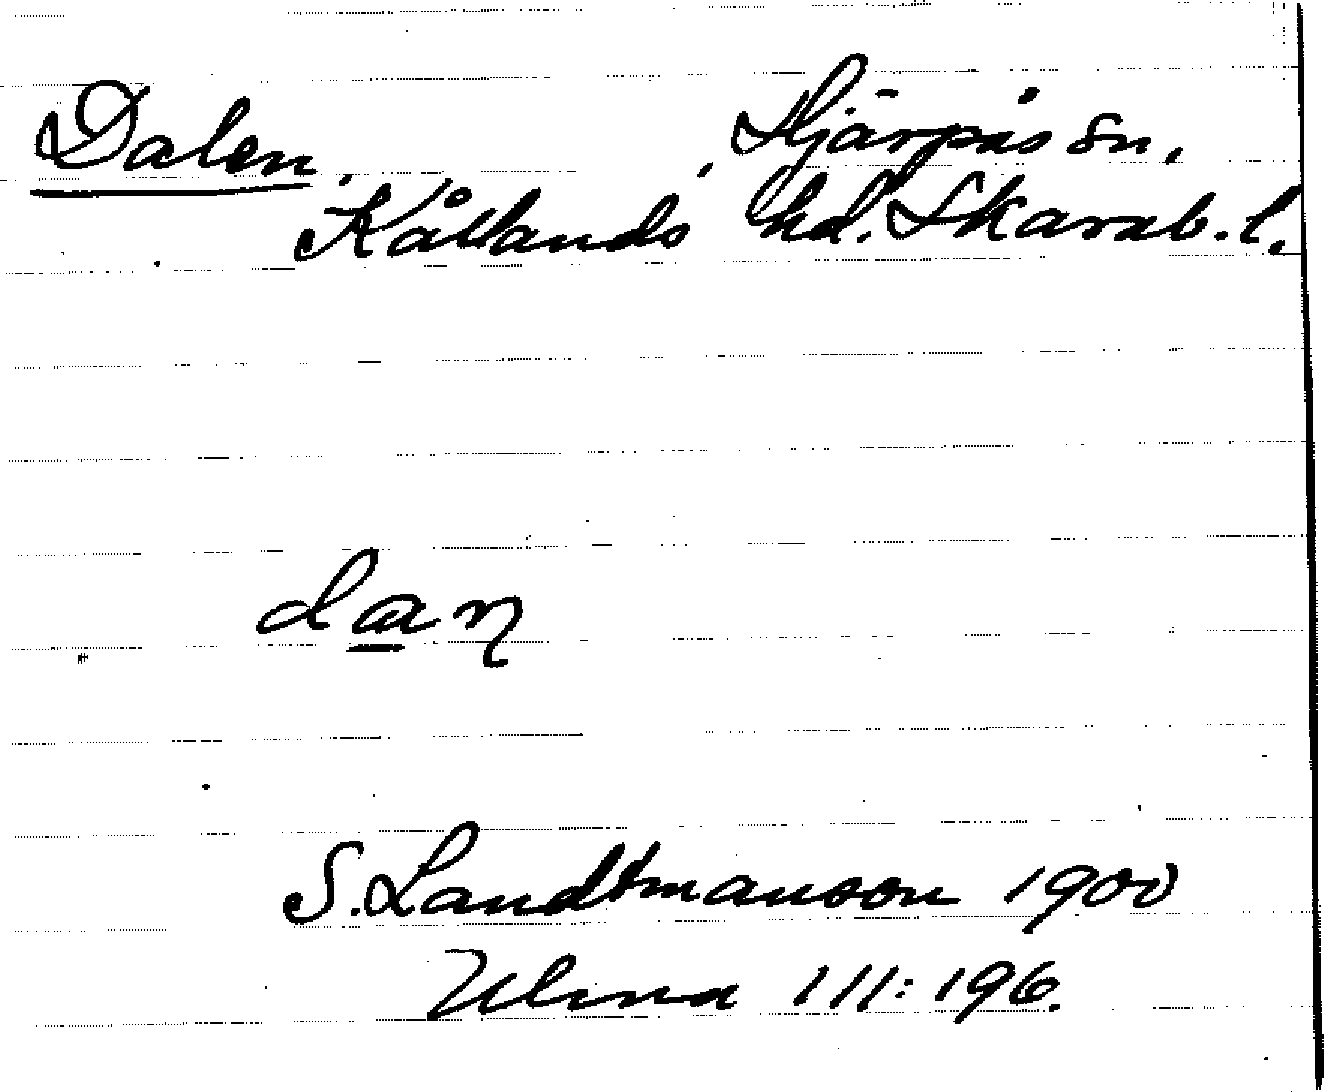 Dalen, Härpås sn.
Kållands hd. Skarab. l.
dan
S. Landtmanson 1900
Ulma 111:196.